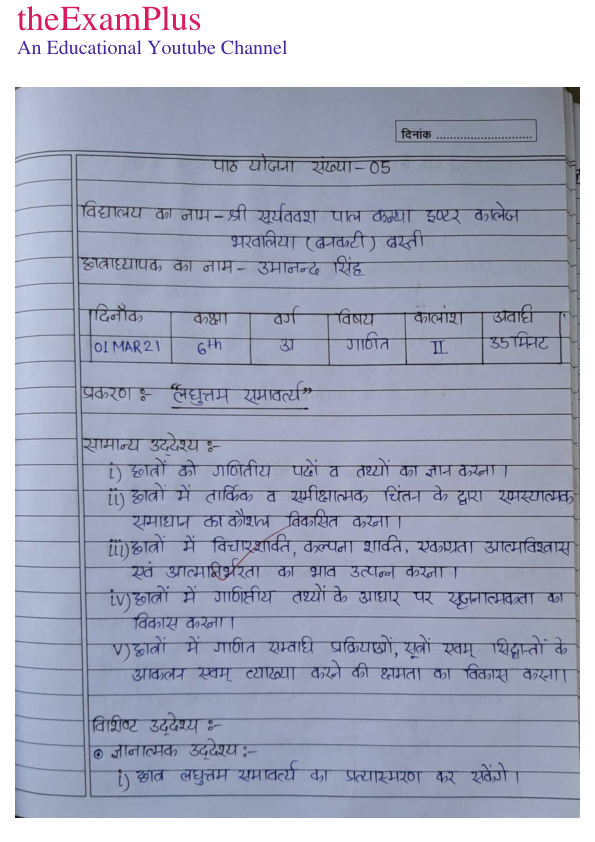 theExamPlus
An Educational Youtube Channel
दिनांक ..............................
पाठ योजना संख्या - 05
विद्यालय का नाम - श्री सूर्यवंश पाल कन्या इण्टर कालेज
भरवलिया (बनकटी) बस्ती
छात्राध्यापक का नाम - उमानन्द सिंह
दिनाँक कक्षा वर्ग विषय कालांश अवाधि
01 MAR 21 6th अ गणित II 35 मिनट
प्रकरण :- "लघुत्तम समावर्त्य"
सामान्य उद्देश्य :-
i) छात्रों को गणितीय पदों व तथ्यों का ज्ञान करना।
ii) छात्रों में तार्किक व समीक्षात्मक चिंतन के द्वारा समस्यात्मक
समाधान का कौशल विकसित करना।
iii) छात्रों में विचारशक्ति, कल्पना शक्ति, एकाग्रता आत्मविश्वास
एवं आत्मनिर्भरता का भाव उत्पन्न करना।
iv) छात्रों में गणितीय तथ्यों के आधार पर सृजनात्मकता का
विकास करना।
v) छात्रों में गणित सम्बधि प्रक्रियाओं, सूत्रों एवम् सिद्धान्तों के
आकलन एवम् व्याख्या करने की क्षमता का विकास करना।
विशिष्ट उद्देश्य :-
⊙ ज्ञानात्मक उद्देश्य :-
i) छात्र लघुत्तम समावर्त्य का प्रत्यास्मरण कर सकेंगे।